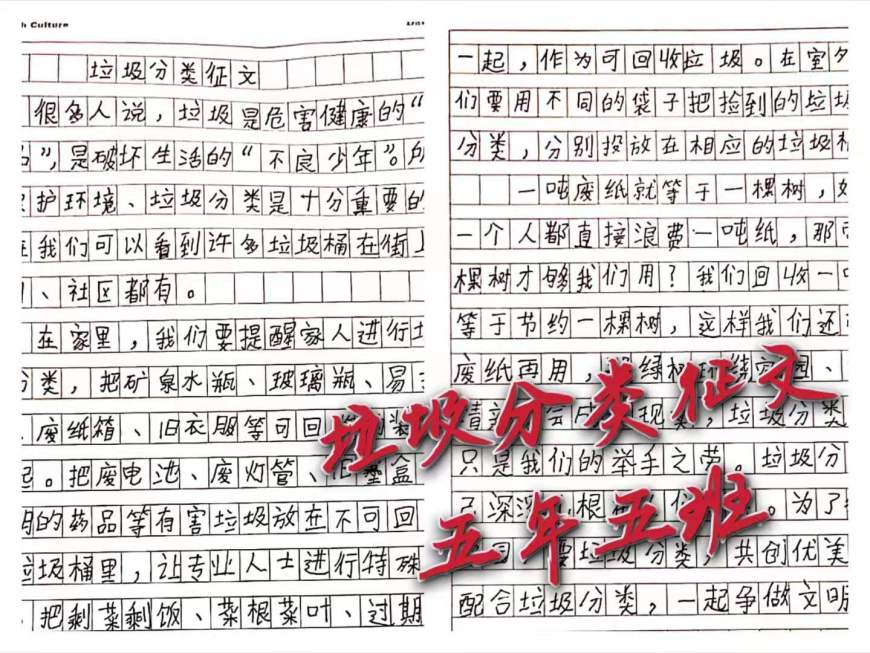 h Culture
垃圾分类征文
很多人说，垃圾是危害健康的“
”，是破坏生活的“不良少年”。所
护环境、垃圾分类是十分重要的
我们可以看到许多垃圾桶在街上
、社区都有。
在家里，我们要提醒家人进行垃
分类，把矿泉水瓶、玻璃瓶、易
、废纸箱、旧衣服等可回
起。把废电池、废灯管、旧墨盒
期的药品等有害垃圾放在不可回
垃圾桶里，让专业人士进行特殊
。把剩菜剩饭、菜根菜叶、过期
一起，作为可回收垃圾。在室外
们要用不同的袋子把捡到的垃圾
分类，分别投放在相应的垃圾桶
一吨废纸就等于一棵树，如
一个人都直接浪费一吨纸，那
棵树才够我们用？我们回收一吨
等于节约一棵树，这样我们还
废纸再用，绿树环绕家园、
会成现实，垃圾分类
只是我们的举手之劳。垃圾分
深深根
。为了
要垃圾分类，共创优美
配合垃圾分类，一起争做文明
垃圾分类征文
五年五班